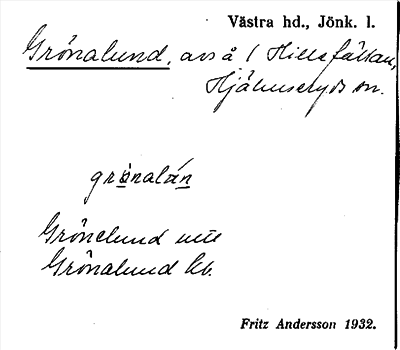 Västra hd., Jönk. l.
Grönalund, avs å 1 Hillefällan,
Hjälmseryds sn.
grönalún
Grönelund
Grönalund kb.
Fritz Andersson 1932.